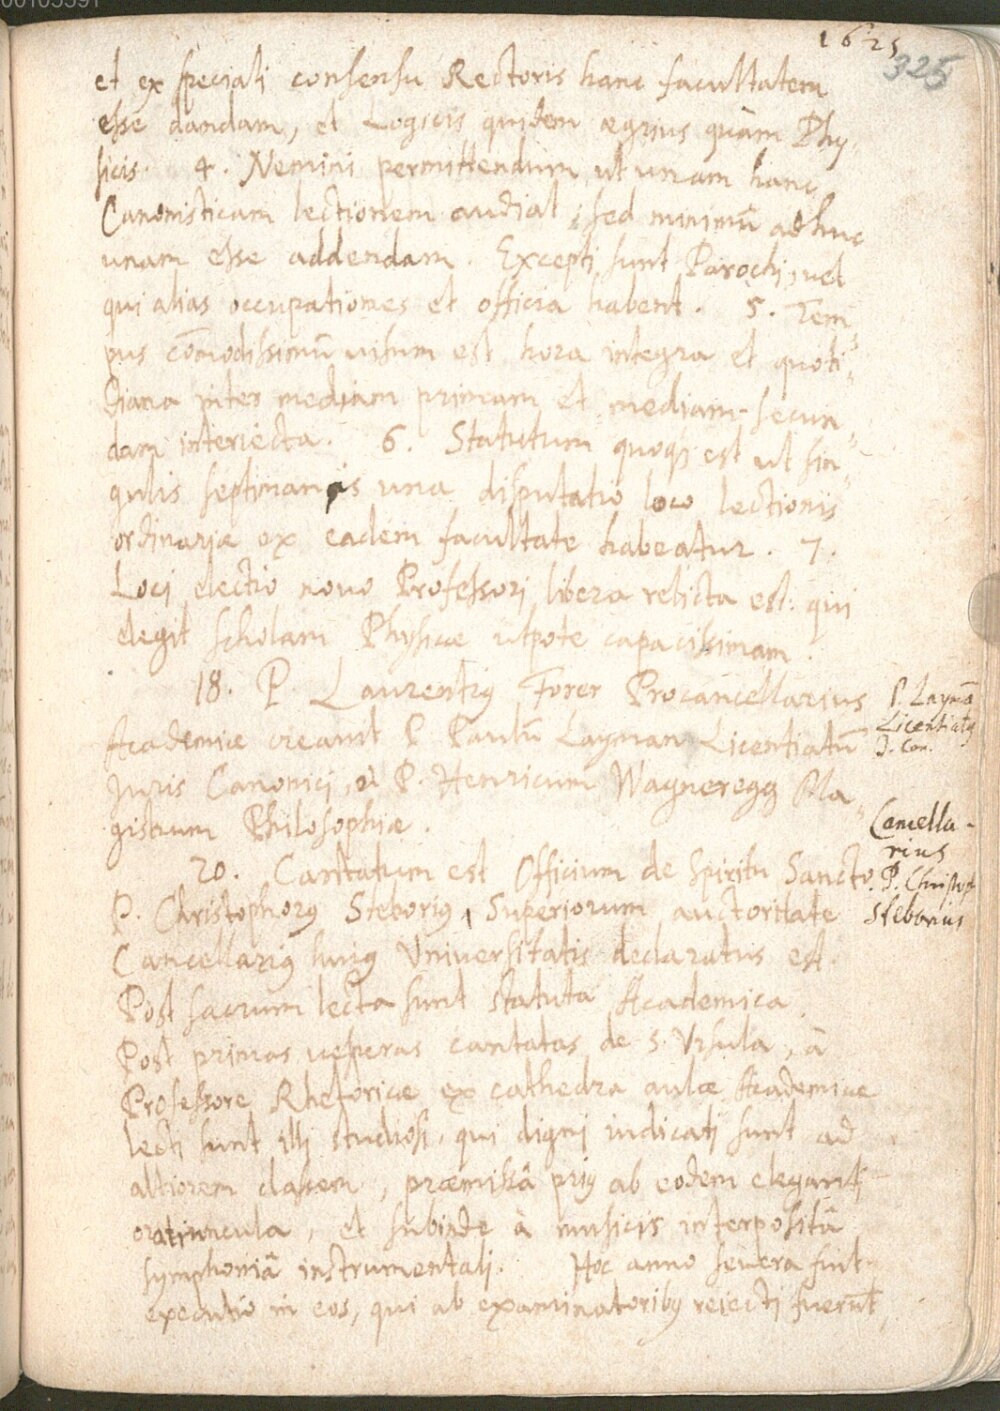 00105591
1625
325
et ex speciali consensu Rectoris hanc facultatem
esse dandam, et Logicis quidem aegrius quàm Phy
sicis. 4. Nemini permittendum, ut unam hanc
Canonisticam lectionem audiat, sed minimũ adhuc
unam esse addendam. Excepti sunt Parochi, vel
qui alias occupationes et officia habent. 5. Tem=
pus com̄odissimũ visum est hora integra et quoti=
diana inter mediam primam et mediam secun=
dam interiecta. 6. Statutum quoq; est ut sin=
gulis septimanis una disputatio loco lectionis
ordinariæ ex eadem facultate habeatur. 7.
Loci electio novo Professori libera relicta est: qui
elegit scholam Physicæ utpote capacissimam.
18. P. Laurentiꝰ Forer Procancellarius
Academiæ creavit P. Paulũ Layman Licentiatũ
Juris Canonici, et P. Henricum Wagneregg Ma=
gistrum Philosophiæ.
P. Laymã
Licentiatꝰ
J. Can.
20. Cantatum est Officium de Spiritu Sancto.
P. Christophorꝰ Steboriꝰ, Superiorum auctoritate
Cancellariꝰ huiꝰ Universitatis declaratus est.
Cancella-
rius
P. Christoph
Steborius
Post sacrum lecta sunt statuta Academica.
Post primas vesperas cantatas de S. Ursula, à
Professore Rhetoricæ ex cathedra aulæ Academicæ
lecti sunt illi studiosi, qui digni iudicati sunt ad
altiorem classem, præmissâ priꝰ ab eodem eleganti
oratiuncula, et subinde à musicis interpositâ
symphoniâ instrumentali. Hoc anno severa fuit
executio in eos, qui ab examinatoribꝰ reiecti fuerũt,